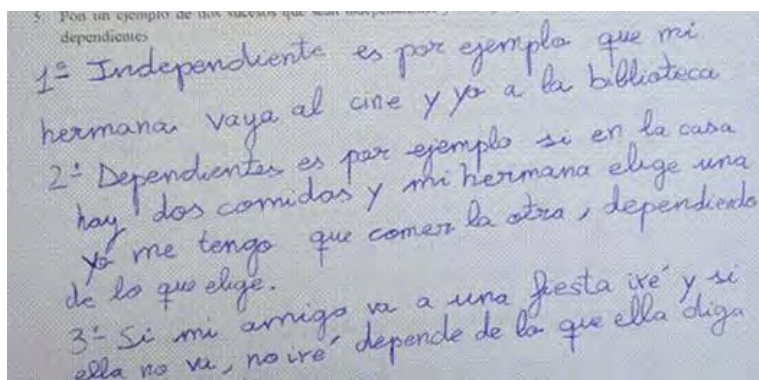 5. Pon un ejemplo de dos sucesos que sean
dependientes
1º Independiente es por ejemplo que mi
hermana vaya al cine y yo a la biblioteca
2º Dependientes es por ejemplo si en la casa
hay dos comidas y mi hermana elige una
yo me tengo que comer la otra, dependiendo
de lo que elige.
3º Si mi amiga va a una fiesta iré y si
ella no va, no iré depende de lo que ella diga